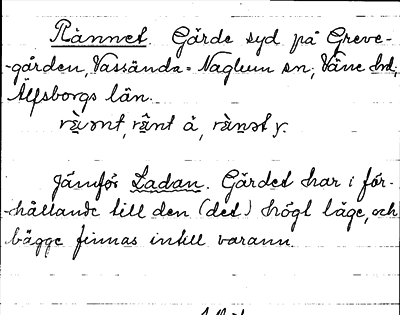 Rännet. Gärde syd på Greve-
-gården, Vassända-Naglum sn, Väne hd,
Älfsborgs län.
Jämför Ladan. Gärdet har i för-
-hållande till den (det) högt läge, och
bägge finnas intill varann.